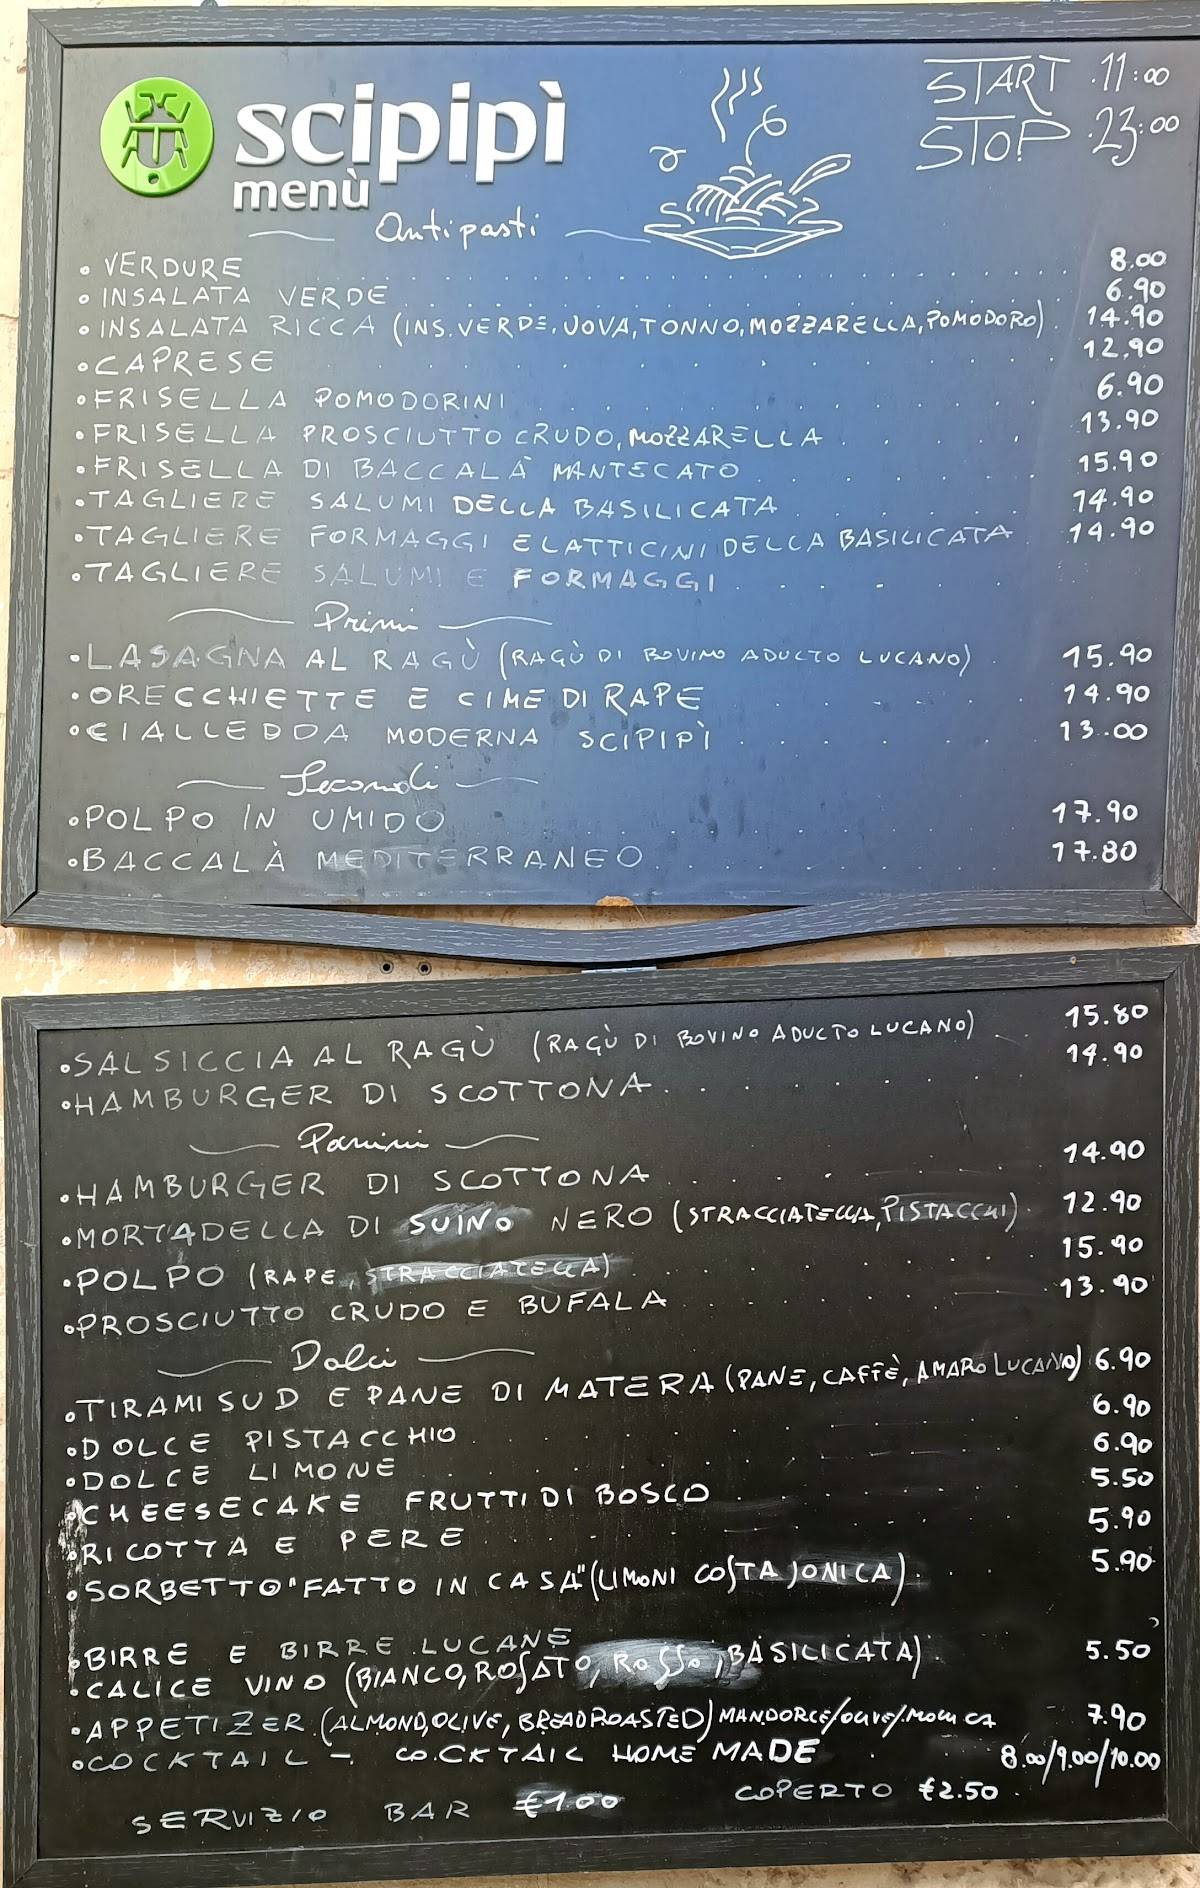 START 11:00
STOP 23:00
scipipì
menù
Antipasti
• VERDURE 8.00
• INSALATA VERDE 6.90
• INSALATA RICCA (INS.VERDE, UOVA, TONNO, MOZZARELLA, POMODORO) 14.90
• CAPRESE 12.90
• FRISELLA POMODORINI 6.90
• FRISELLA PROSCIUTTO CRUDO, MOZZARELLA 13.90
• FRISELLA DI BACCALÀ MANTECATO 15.90
• TAGLIERE SALUMI DELLA BASILICATA 14.90
• TAGLIERE FORMAGGI E LATTICINI DELLA BASILICATA 14.90
• TAGLIERE SALUMI E FORMAGGI
Primi
• LASAGNA AL RAGÙ (RAGÙ DI BOVINO ADULTO LUCANO) 15.90
• ORECCHIETTE E CIME DI RAPE 14.90
• CIALLEDDA MODERNA SCIPIPÌ 13.00
Secondi
• POLPO IN UMIDO 17.90
• BACCALÀ MEDITERRANEO 17.80
• SALSICCIA AL RAGÙ (RAGÙ DI BOVINO ADULTO LUCANO) 15.80
• HAMBURGER DI SCOTTONA 14.90
Panini
• HAMBURGER DI SCOTTONA 14.90
• MORTADELLA DI SUINO NERO (STRACCIATELLA, PISTACCHI) 12.90
• POLPO (RAPE, STRACCIATELLA) 15.90
• PROSCIUTTO CRUDO E BUFALA 13.90
Dolci
• TIRAMISUD E PANE DI MATERA (PANE, CAFFÈ, AMARO LUCANO) 6.90
• DOLCE PISTACCHIO 6.90
• DOLCE LIMONE 6.90
• CHEESECAKE FRUTTI DI BOSCO 5.50
• RICOTTA E PERE 5.90
• SORBETTO "FATTO IN CASA" (LIMONI COSTA JONICA) 5.90
• BIRRE E BIRRE LUCANE
• CALICE VINO (BIANCO, ROSATO, ROSSO, BASILICATA) 5.50
• APPETIZER (ALMOND, OLIVE, BREADROASTED) MANDORLE/OLIVE/MOLLICA 7.90
• COCKTAIL - COCKTAIL HOME MADE 8.00/9.00/10.00
SERVIZIO BAR €1.00 COPERTO €2.50